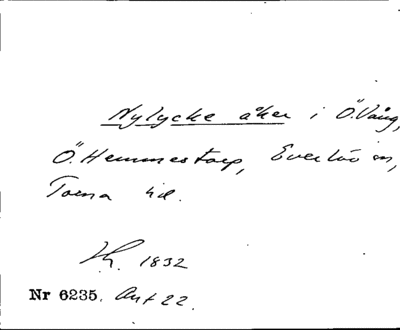 Nylycke åker i Ö. Vång,
Ö. Hemmestorp, Everlöv sn,
Torna hd.
1832
Nr 6235. Ant 22.